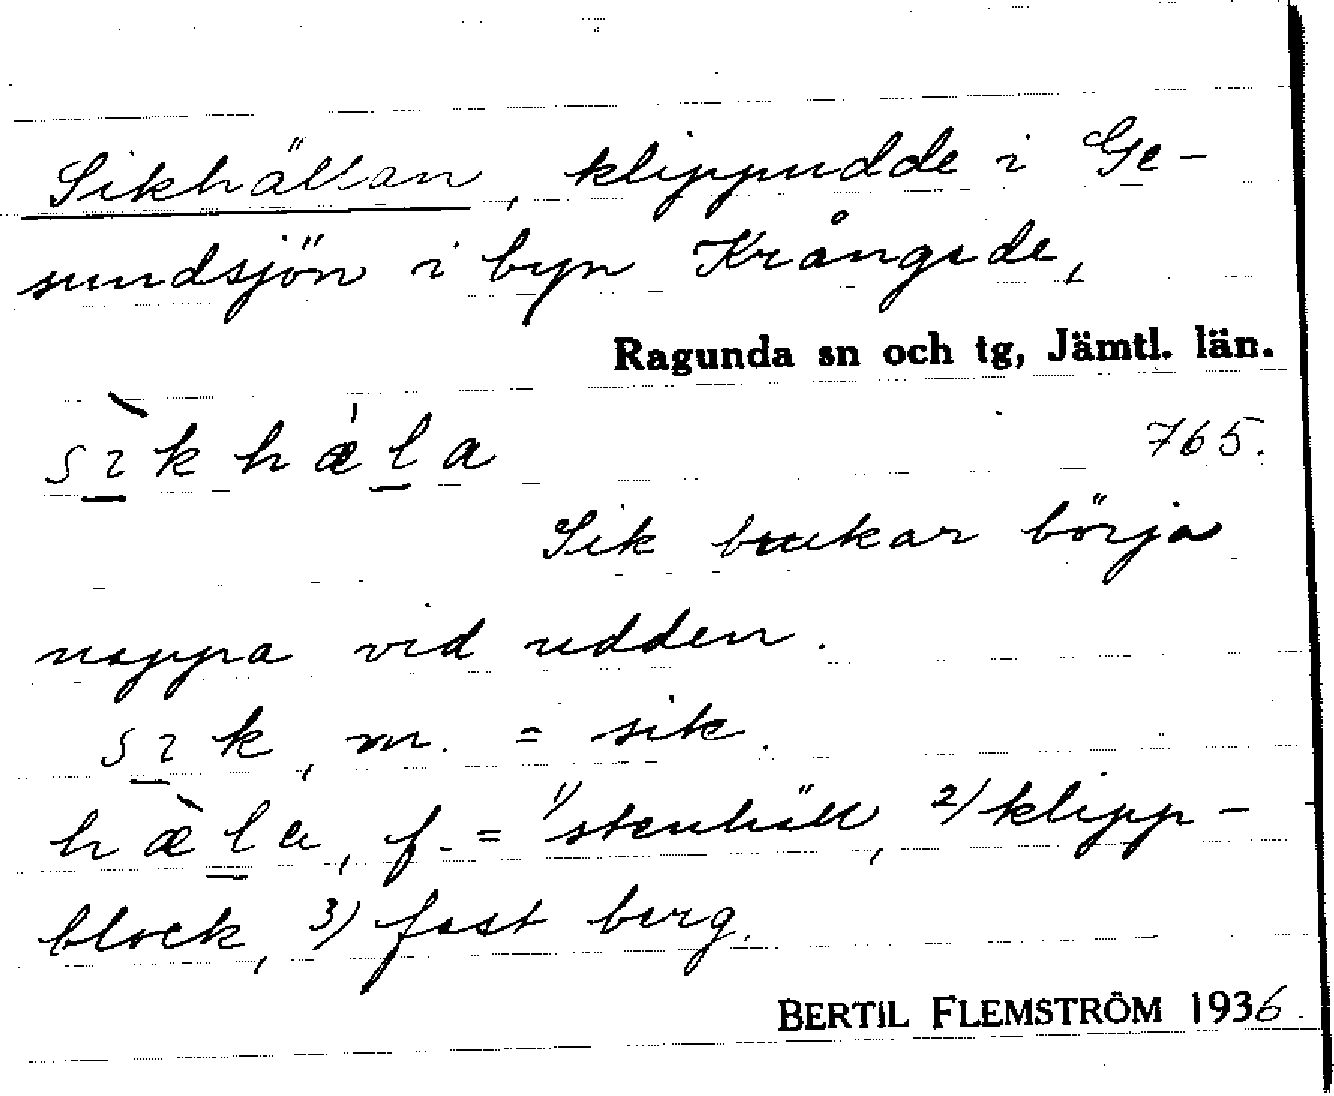 Sikhällan, klippudde i Ge-
sundsjön i byn Krångede,
Ragunda sn och tg, Jämtl. län.
sɩ̀khæ̍la
765.
Sik brukar börja
nappa vid udden.
sɩk, m. = sik.
hæ̀la, f. = 1) stenhäll, 2) klipp-
block, 3) fast berg.
BERTIL FLEMSTRÖM 1936.